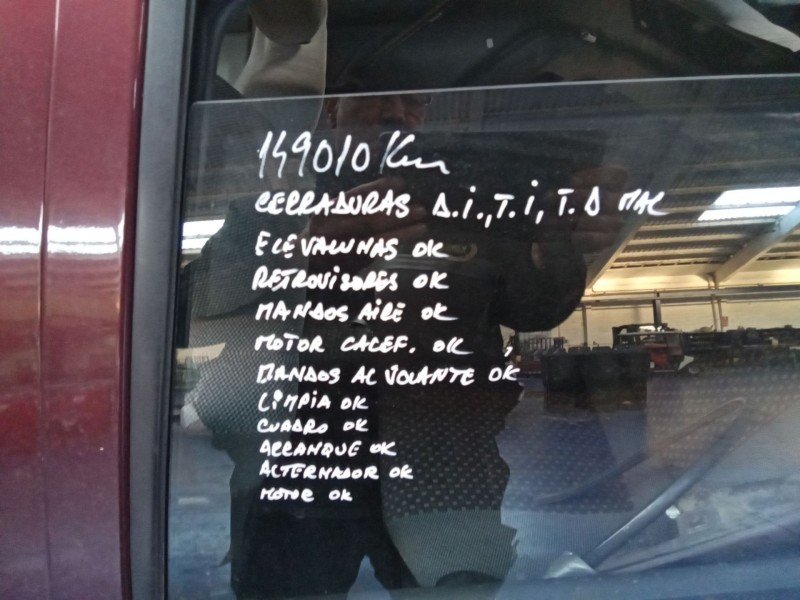 149010 Km
CERRADURAS D.i., T.i, T.D MAL
ELEVALUNAS OK
RETROVISORES OK
MANDOS AIRE OK
MOTOR CALEF. OK
MANDOS AL VOLANTE OK
LIMPIA OK
CUADRO OK
ARRANQUE OK
ALTERNADOR OK
MOTOR OK